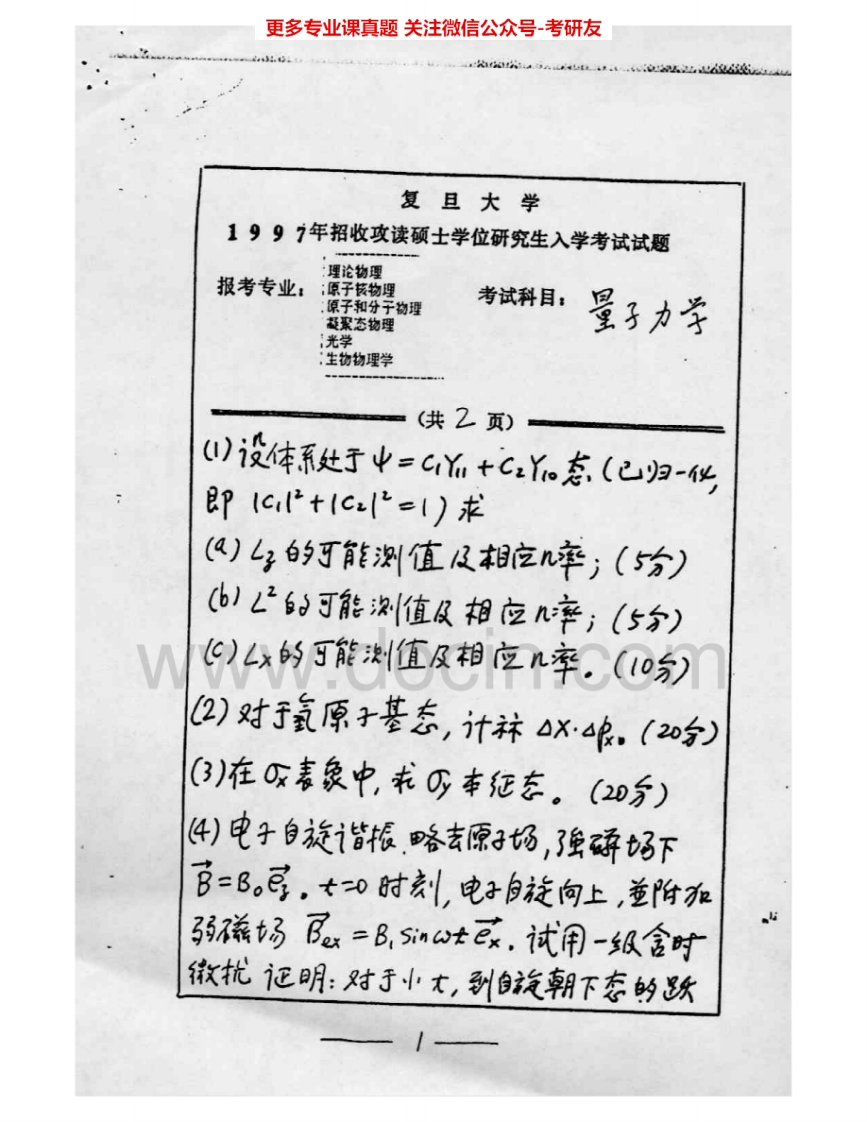 更多专业课真题 关注微信公众号-考研友
复旦大学
1997年招收攻读硕士学位研究生入学考试试题
报考专业：
理论物理
原子核物理
原子和分子物理
凝聚态物理
光学
生物物理学
考试科目：量子力学
（共2页）
(1)设体系处于ψ=C₁Y₁₁+C₂Y₁₀态(已归一化,
即 |C₁|²+|C₂|²=1)求
(a) Lz的可能测值及相应几率；(5分)
(b) L²的可能测值及相应几率；(5分)
(c) Lx的可能测值及相应几率。(10分)
(2)对于氢原子基态,计标 Δx·Δpx。(20分)
(3)在σx表象中,求σy本征态。(20分)
(4)电子自旋谐振.略去原子场,强磁场下
B⃗=B₀e⃗z。t=0时刻,电子自旋向上,並附加
弱磁场 B⃗ex=B₁sinωt e⃗x。试用一级含时
微扰证明：对于小t,到自旋朝下态的跃
1
www.docin.com